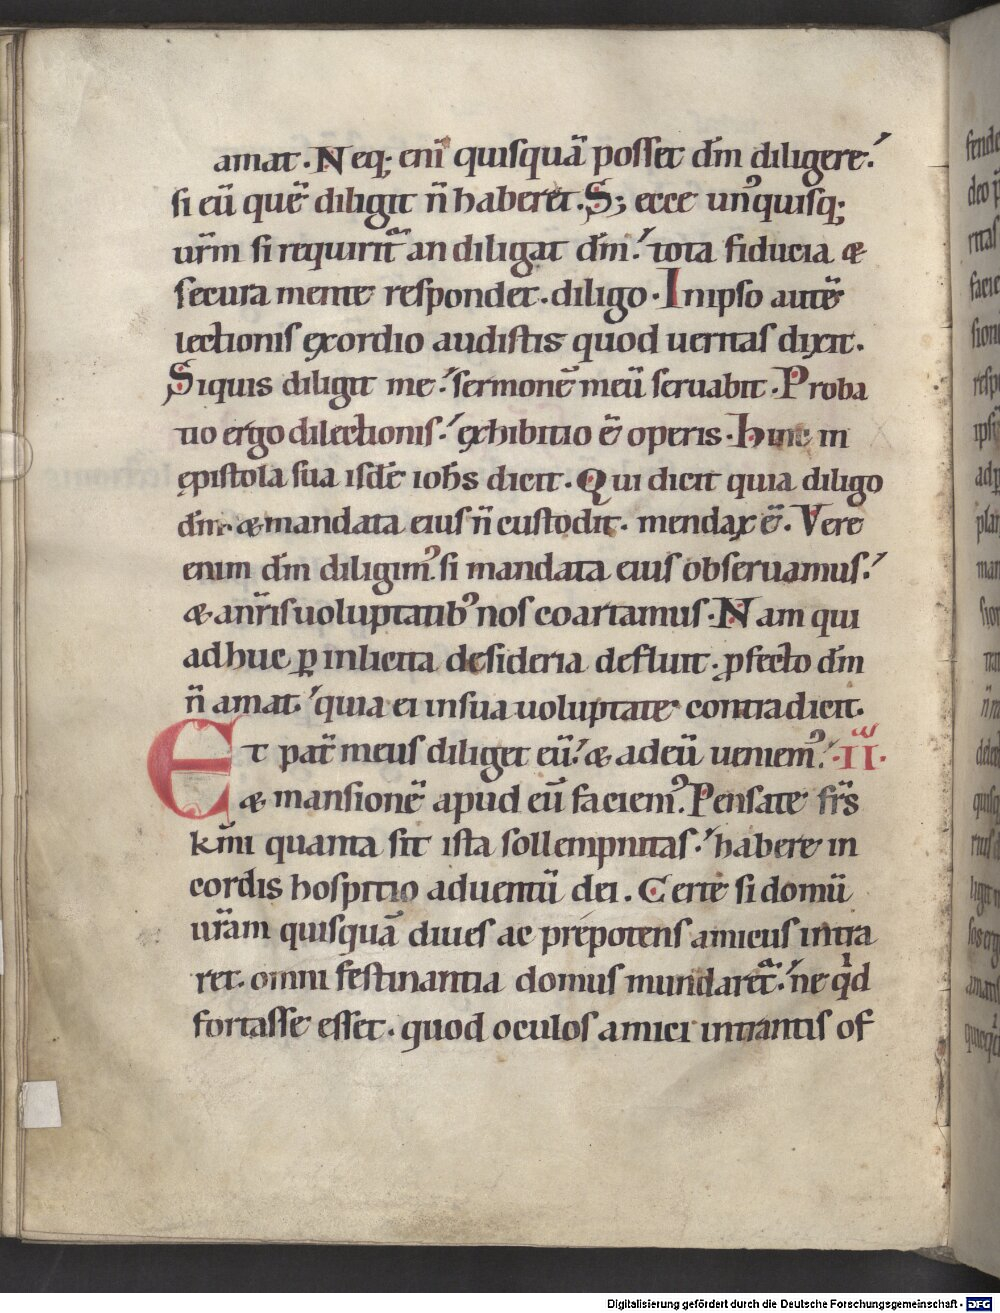 amat. Neq; eni̅ quisquā posset dm̅ diligere.
si eū quē diligit n̅ haberet. S; ecce un9quisq;
ur̅m si requirit᷑ an diligat dm̅. tota fiducia &
secura mente respondet. diligo. In ipso autē
lectionis exordio audistis quod ueritas dixit.
Siquis diligit me. sermonē meū seruabit. Proba
tio ergo dilectionis. exhibitio ē operis. Hinc in
epistola sua isdē ioh̅s dicit. Qui dicit quia diligo
dm̅. & mandata eius n̅ custodit. mendax ē. Vere
enim dm̅ diligim9. si mandata eius obseruamus.
& a nr̅is uoluptatib9 nos coartamus. Nam qui
adhuc ꝑ inlicita desideria defluit. ꝓfecto dm̅
n̅ amat. quia ei in sua uoluptate contradicit.
Et pat̅ meus diliget eū. & ad eū ueniem9. III.
& mansionē apud eū faciem9. Pensate fr̅s
km̅i quanta sit ista sollempnitas. habere in
cordis hospitio aduentū dei. Certe si domū
ur̅am quisquā diues ac prepotens amicus intra
ret. omni festinantia domus mundaret᷑. ne qͥd
fortasse esset. quod oculos amici intrantis of
Digitalisierung gefördert durch die Deutsche Forschungsgemeinschaft - DFG